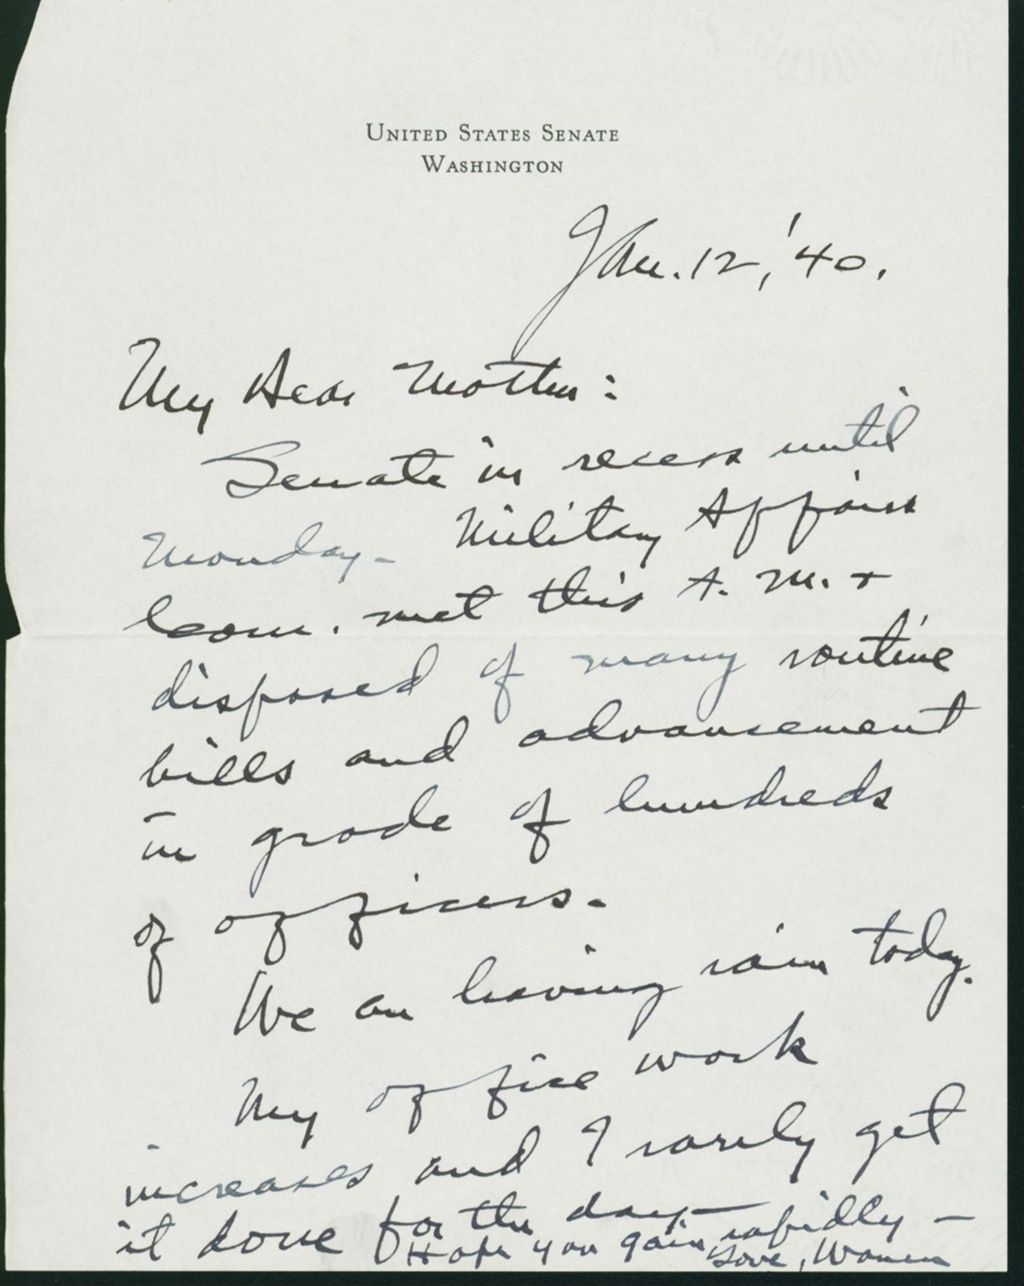 UNITED STATES SENATE
WASHINGTON
Jan. 12, '40.
My Dear Mother:
Senate in recess until
Monday - Military Affairs
Com. met this A. M. +
disposed of many routine
bills and advancement
in grade of hundreds
of officers. -
We are having rain today.
My office work
increases and I rarely get
it done for the day -
Hope you gain rapidly -
Love, Warren